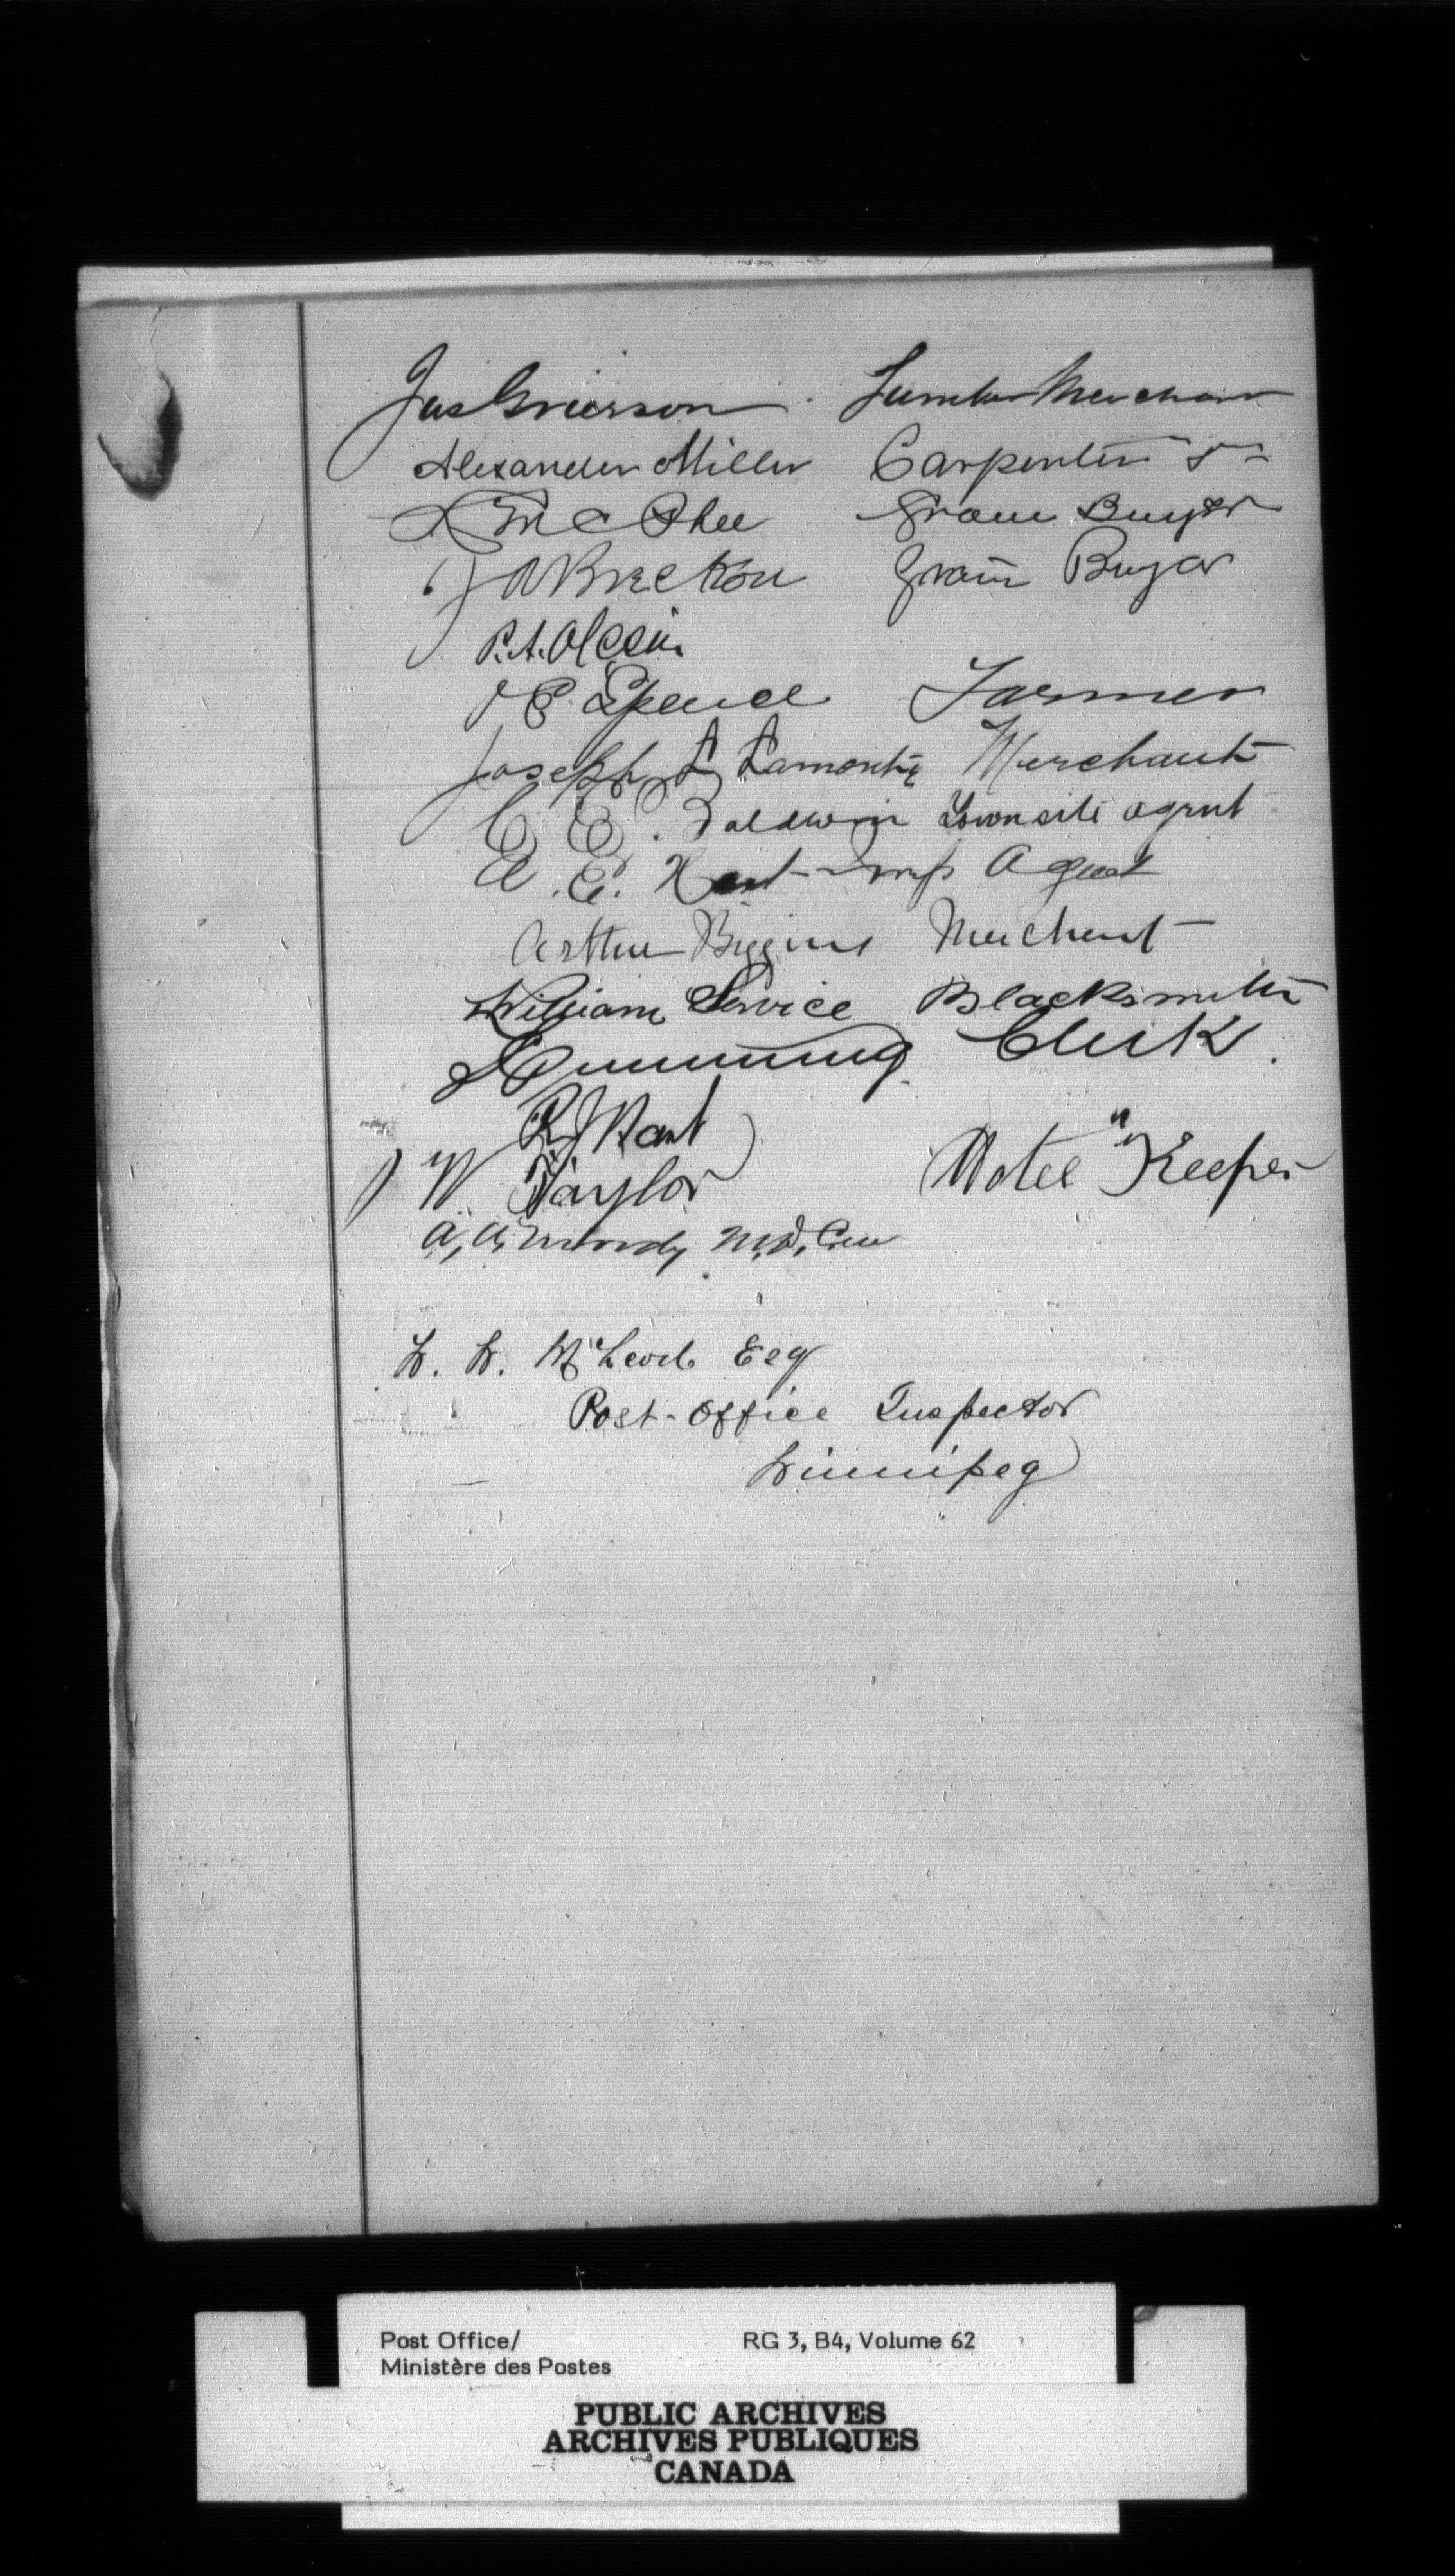 Jas Grierson Lumber Merchant
Alexander Miller Carpenter
McPhee Grain Buyer
J A Breckon Grain Buyor
P. A. Olson
J C Spence Farmer
Joseph L Lamonte Merchant
C C. Baldwin Townsite agent
A. E. Hart Imp Agent
Arthur Biggins Merchant
William Service Blacksmith
Cumming Clerk.
R J Hart "
J W Taylor Hotel Keeper
A, A, M.D.
W. W. McLeod Esq
Post-Office Inspector
Winnipeg
Post Office/ RG 3, B4, Volume 62
Ministère des Postes
PUBLIC ARCHIVES
ARCHIVES PUBLIQUES
CANADA